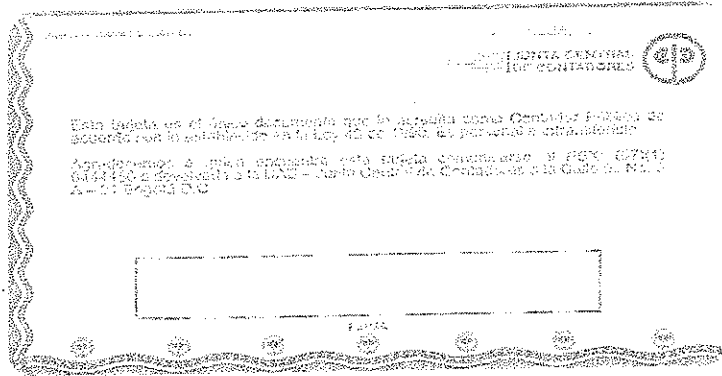 JUNTA CENTRAL
DE CONTADORES
Esta tarjeta es el único documento que lo acredita como Contador Público de
acuerdo con lo establecido en la Ley 43 de 1990. Es personal e intransferible.
Agradecemos a quien encuentre esta tarjeta comunicarse al PBX:
o devolverla a la UAE – Junta Central de Contadores a la Calle No.
Bogotá D.C
FIRMA